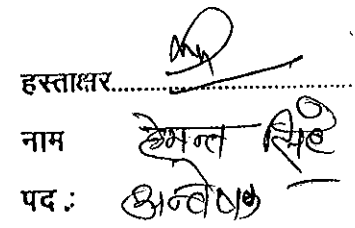 हस्ताक्षर..............................
नाम हेमन्त सिंह
पद : अन्वेषक